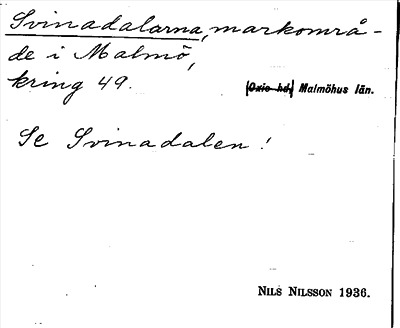 Svinadalarna, markområ-
de i Malmö,
kring 49.
(Oxie hd) Malmöhus län.
Se Svinadalen!
NILS NILSSON 1936.